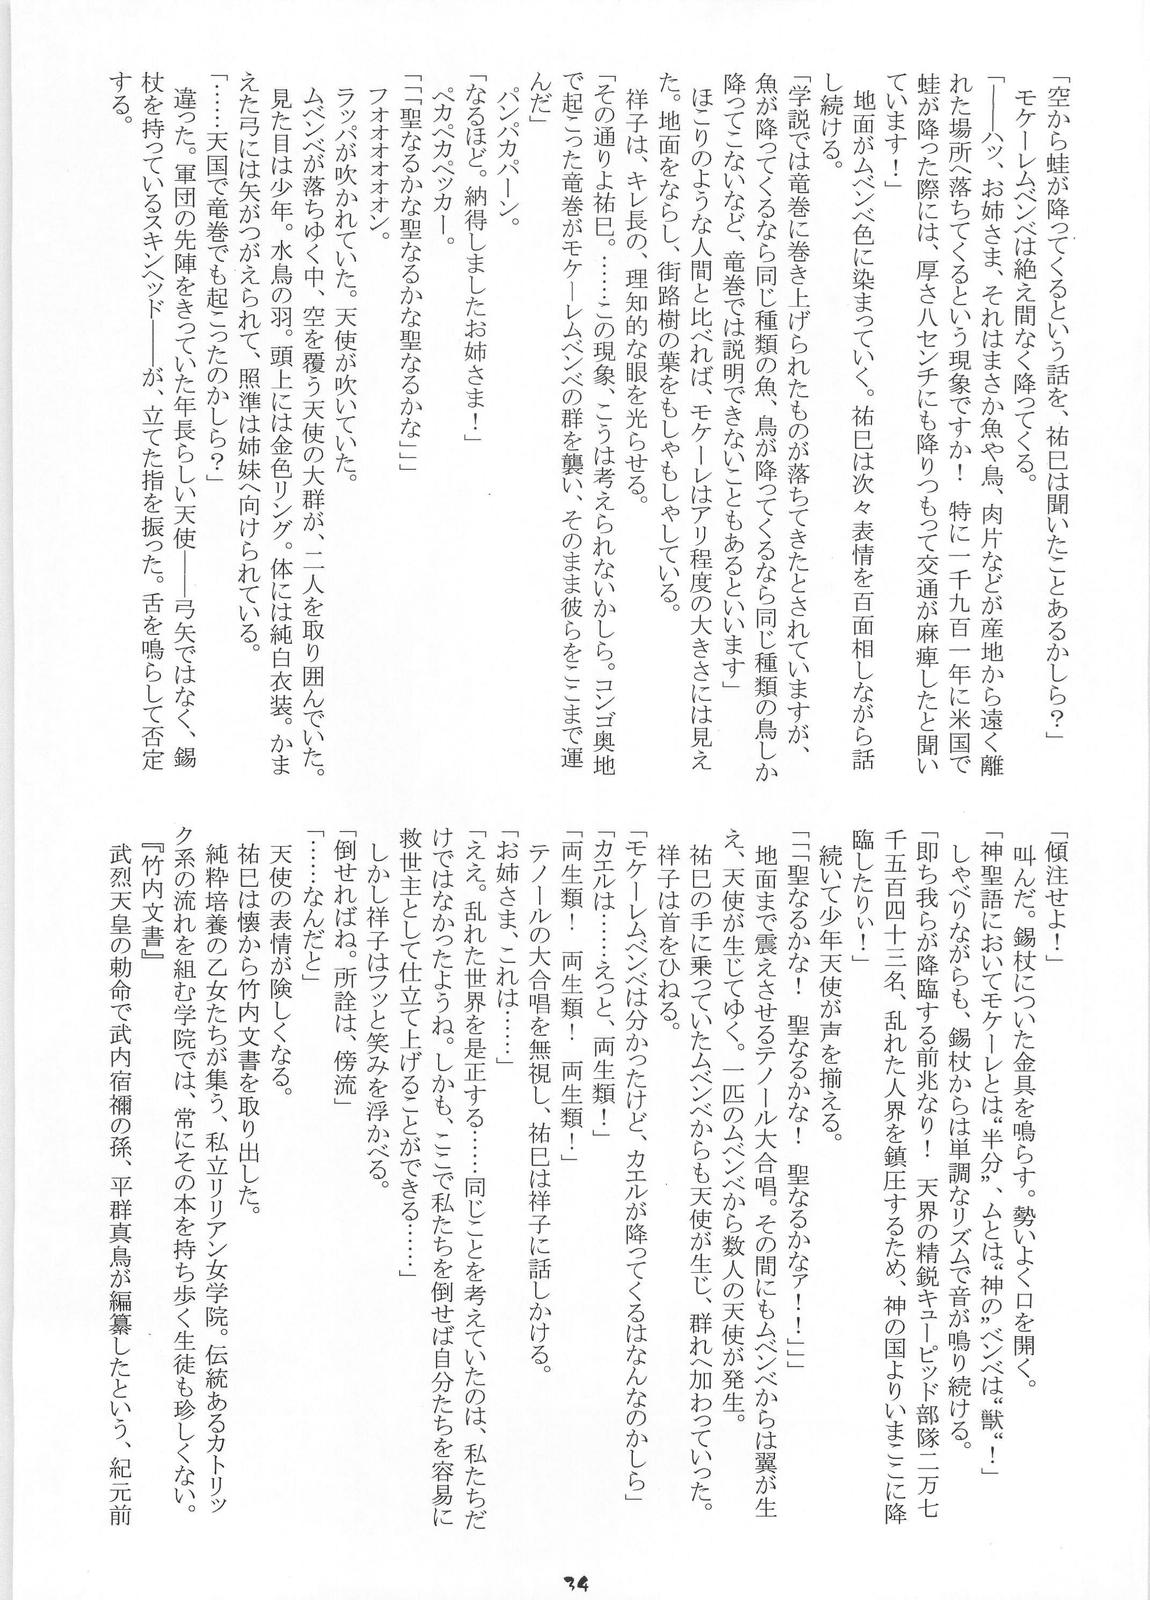 「空から蛙が降ってくるという話を、祐巳は聞いたことあるかしら？」
　モケーレムベンベは絶え間なく降ってくる。
「――ハッ、お姉さま、それはまさか魚や鳥、肉片などが産地から遠く離
れた場所へ落ちてくるという現象ですか！　特に一千九百一年に米国で
蛙が降った際には、厚さ八センチにも降りつもって交通が麻痺したと聞い
ています！」
　地面がムベンベ色に染まっていく。祐巳は次々表情を百面相しながら話
し続ける。
「学説では竜巻に巻き上げられたものが落ちてきたとされていますが、
魚が降ってくるなら同じ種類の魚、鳥が降ってくるなら同じ種類の鳥しか
降ってこないなど、竜巻では説明できないこともあるといいます」
　ほこりのような人間と比べれば、モケーレはアリ程度の大きさには見え
た。地面をならし、街路樹の葉をもしゃもしゃしている。
　祥子は、キレ長の、理知的な眼を光らせる。
「その通りよ祐巳。……この現象、こうは考えられないかしら。コンゴ奥地
で起こった竜巻がモケーレムベンベの群を襲い、そのまま彼らをここまで運
んだ」
　パンパカパーン。
「なるほど。納得しましたお姉さま！」
　ペカペカペッカー。
「「「聖なるかな聖なるかな聖なるかな」」」
　フォオオオオオン。
　ラッパが吹かれていた。天使が吹いていた。
　ムベンベが落ちゆく中、空を覆う天使の大群が、二人を取り囲んでいた。
　見た目は少年。水鳥の羽。頭上には金色リング。体には純白衣装。かま
えた弓には矢がつがえられて、照準は姉妹へ向けられている。
「……天国で竜巻でも起こったのかしら？」
　違った。軍団の先陣をきっていた年長らしい天使――弓矢ではなく、錫
杖を持っているスキンヘッド――が、立てた指を振った。舌を鳴らして否定
する。
「傾注せよ！」
　叫んだ。錫杖についた金具を鳴らす。勢いよく口を開く。
「神聖語においてモケーレとは“半分”、ムとは“神の”ベンベは“獣“！」
　しゃべりながらも、錫杖からは単調なリズムで音が鳴り続ける。
「即ち我らが降臨する前兆なり！　天界の精鋭キューピッド部隊二万七
千五百四十三名、乱れた人界を鎮圧するため、神の国よりいまここに降
臨したりぃ！」
　続いて少年天使が声を揃える。
「「「聖なるかな！　聖なるかな！　聖なるかなァ！！」」」
　地面まで震えさせるテノール大合唱。その間にもムベンベからは翼が生
え、天使が生じてゆく。一匹のムベンベから数人の天使が発生。
　祐巳の手に乗っていたムベンベからも天使が生じ、群れへ加わっていった。
　祥子は首をひねる。
「モケーレムベンベは分かったけど、カエルが降ってくるはなんなのかしら」
「カエルは……えっと、両生類！」
「両生類！　両生類！　両生類！」
　テノールの大合唱を無視し、祐巳は祥子に話しかける。
「お姉さま、これは……」
「ええ。乱れた世界を是正する……同じことを考えていたのは、私たちだ
けではなかったようね。しかも、ここで私たちを倒せば自分たちを容易に
救世主として仕立て上げることができる……」
　しかし祥子はフッと笑みを浮かべる。
「倒せればね。所詮は、傍流」
「……なんだと」
　天使の表情が険しくなる。
　祐巳は懐から竹内文書を取り出した。
　純粋培養の乙女たちが集う、私立リリアン女学院。伝統あるカトリッ
ク系の流れを組む学院では、常にその本を持ち歩く生徒も珍しくない。
『竹内文書』
　武烈天皇の勅命で武内宿禰の孫、平群真鳥が編纂したという、紀元前
34